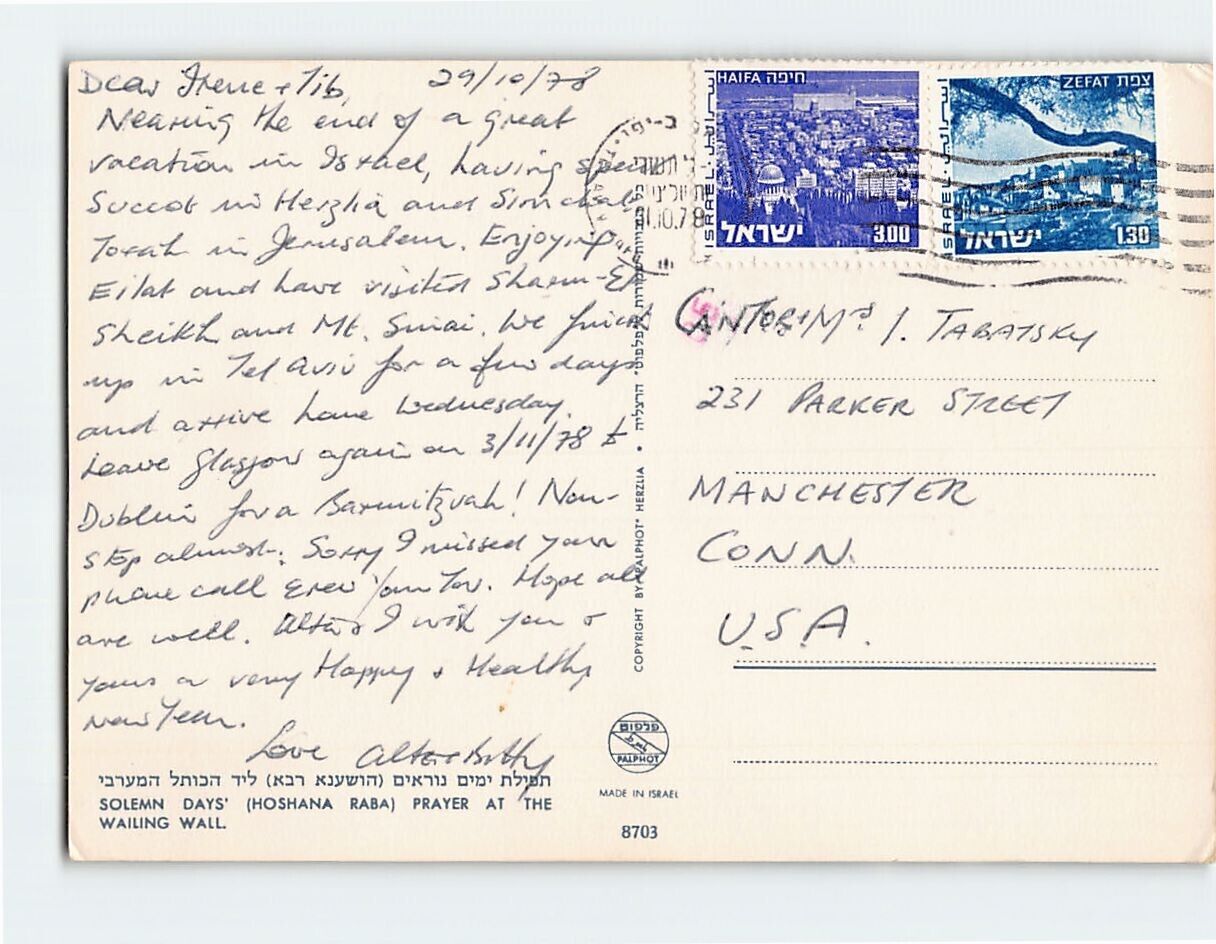 Dear Irene + Tib, 29/10/78
Nearing the end of a great
vacation in Israel, having spent
Succot in Herzlia and Simchat
Torah in Jerusalem. Enjoying
Eilat and have visited Sharm-El
Sheikh and Mt. Sinai. We finish
up in Tel Aviv for a few days
and arrive home Wednesday.
Leave Glasgow again on 3/11/78 to
Dublin for a Barmitzvah! Non-
stop almost. Sorry I missed your
phone call Erev Yom Tov. Hope all
are well. Alter & I wish you &
yours a very Happy & Healthy
New Year.
Love Alter & Betty
תפילת ימים נוראים (הושענא רבא) ליד הכותל המערבי
SOLEMN DAYS' (HOSHANA RABA) PRAYER AT THE
WAILING WALL.
COPYRIGHT BY "PALPHOT" HERZLIA • הרצליה
פלפוט
PALPHOT
MADE IN ISRAEL
8703
HAIFA חיפה
ISRAEL اسرائيل
ישראל 3.00
ZEFAT צפת
ISRAEL اسرائيل
ישראל 1.30
10.78
CANTOR + Mrs I. TABATSKY
231 PARKER STREET
MANCHESTER
CONN.
U.S.A.